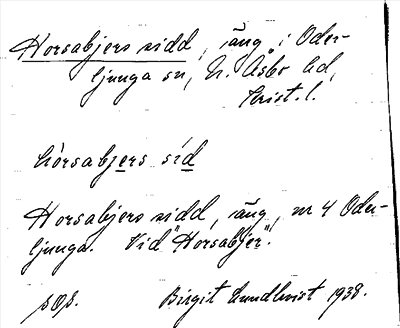 Horsabjers sidd, äng i Oder-
ljunga sn, N. Åsbo hd,
Krist. l.
hòrsabjers síd
Horsabjers sidd, äng, nr 4 Oder-
ljunga. Vid "Horsabjer".
sOs. Birgit Lundkvist 1938.